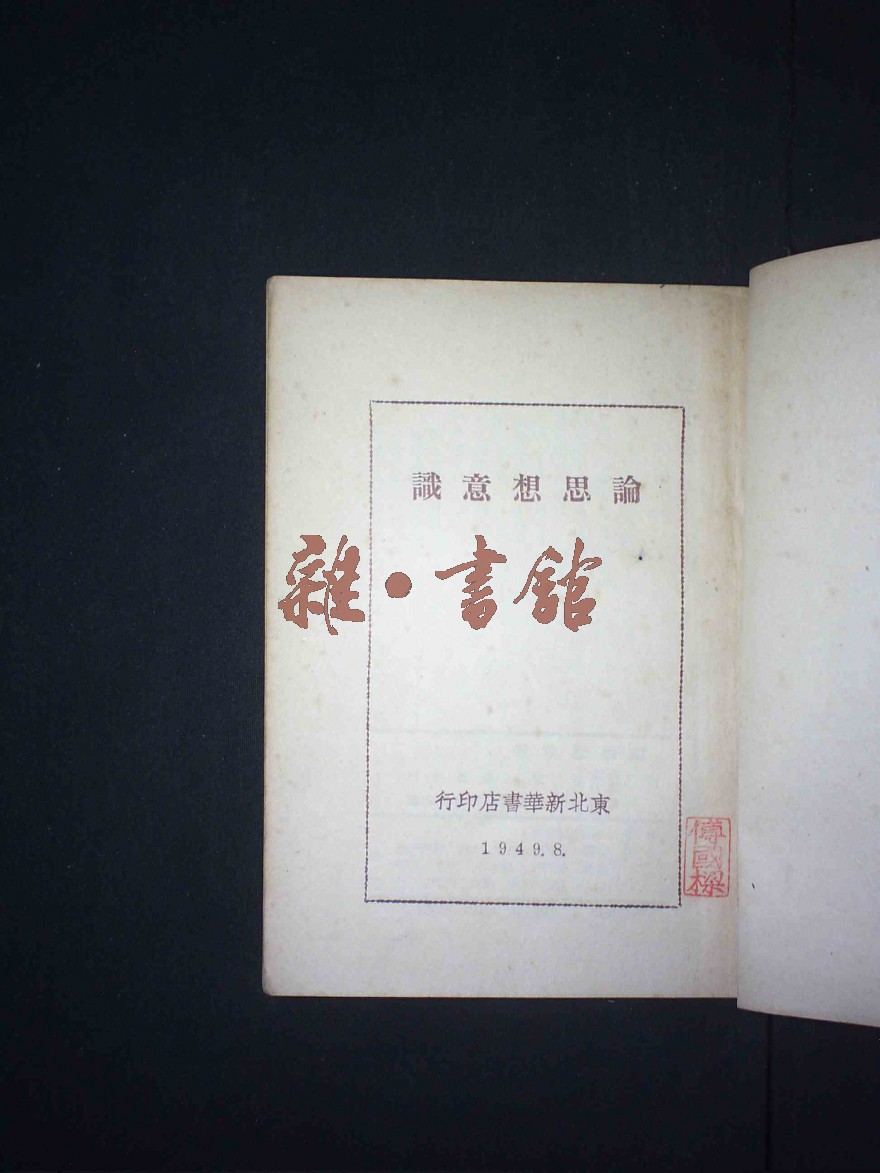 論思想意識
雜·書館
東北新華書店印行
1949.8.
傅國樑